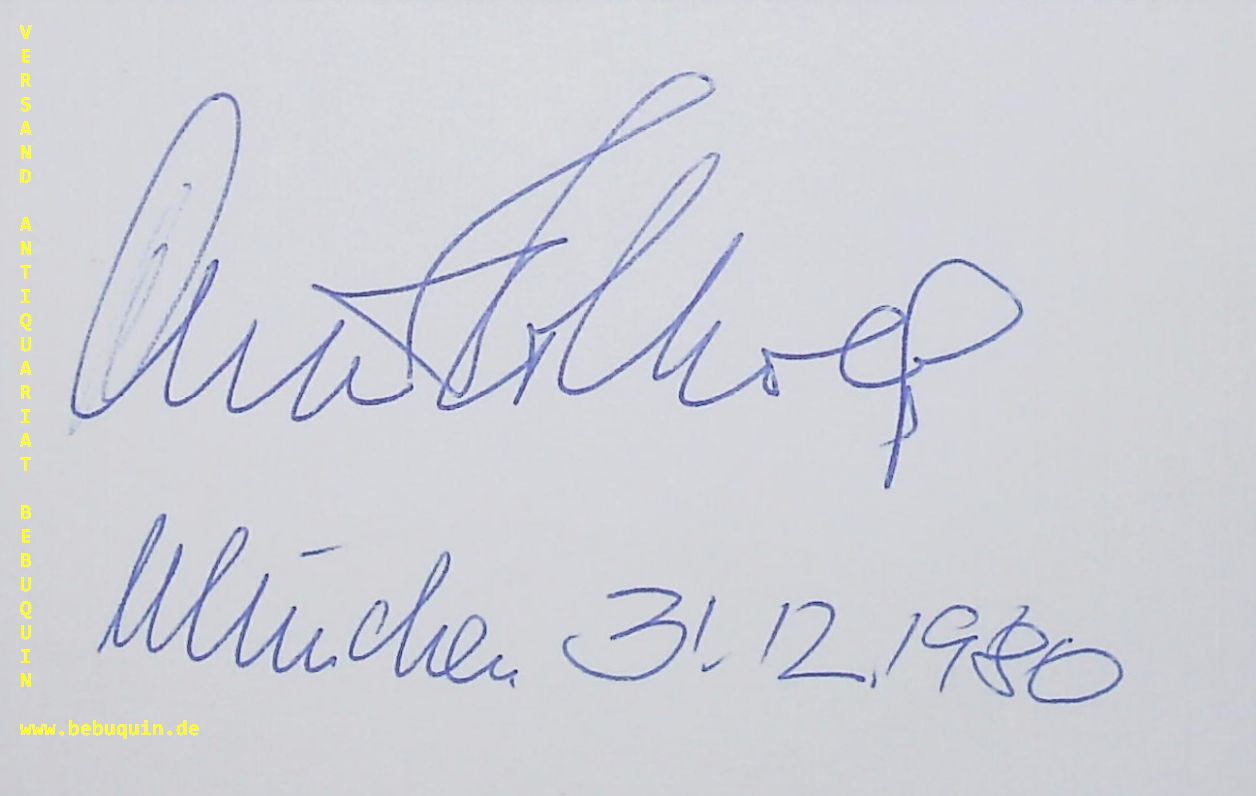 VERSAND ANTIQUARIAT BEBUQUIN
München 31.12.1980
www.bebuquin.de